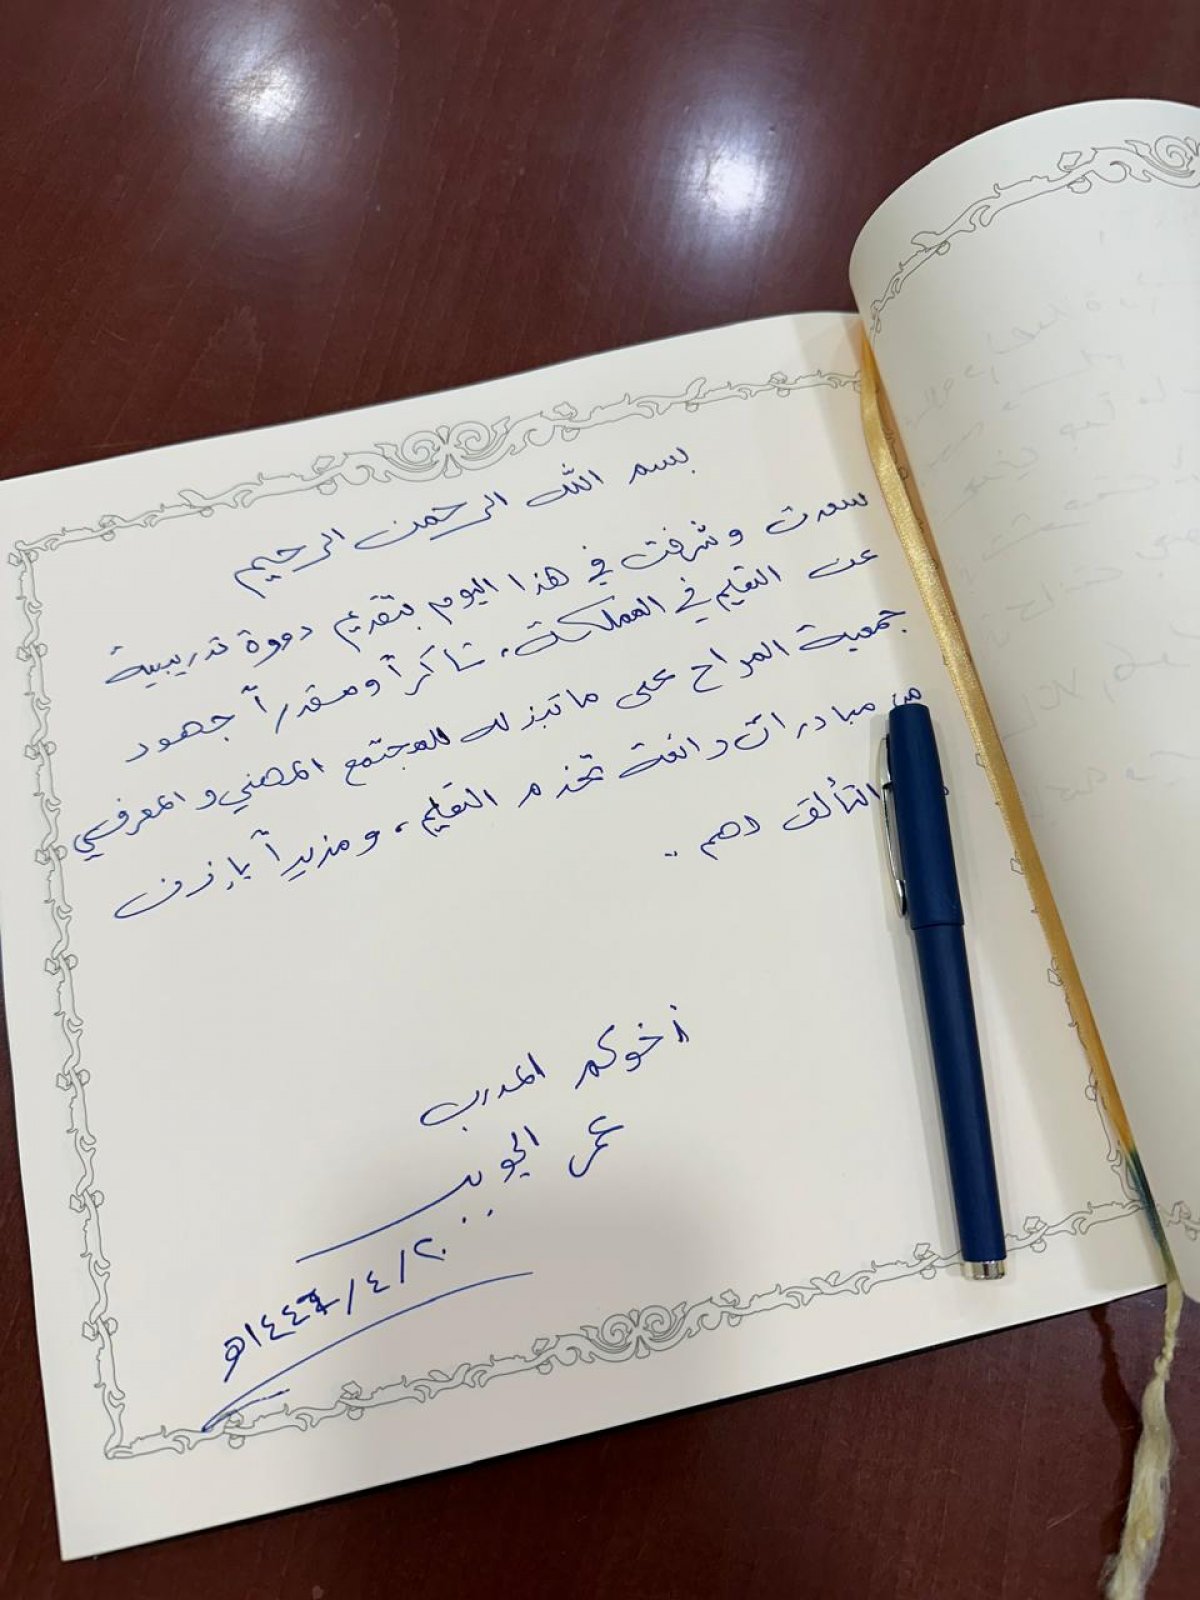 بسم الله الرحمن الرحيم
سعدت وشرفت في هذا اليوم بتقديم دورة تدريبية
عن التعليم في المملكة، شاكراً ومقدراً جهود
جمعية المراح على ما تبذله للمجتمع المهني والمعرفي
من مبادرات رائعة تخدم التعليم، ومزيداً بإذن
التألق لهم ..
أخوكم المدرب
عمر
٢٠/٤/١٤٤٧هـ